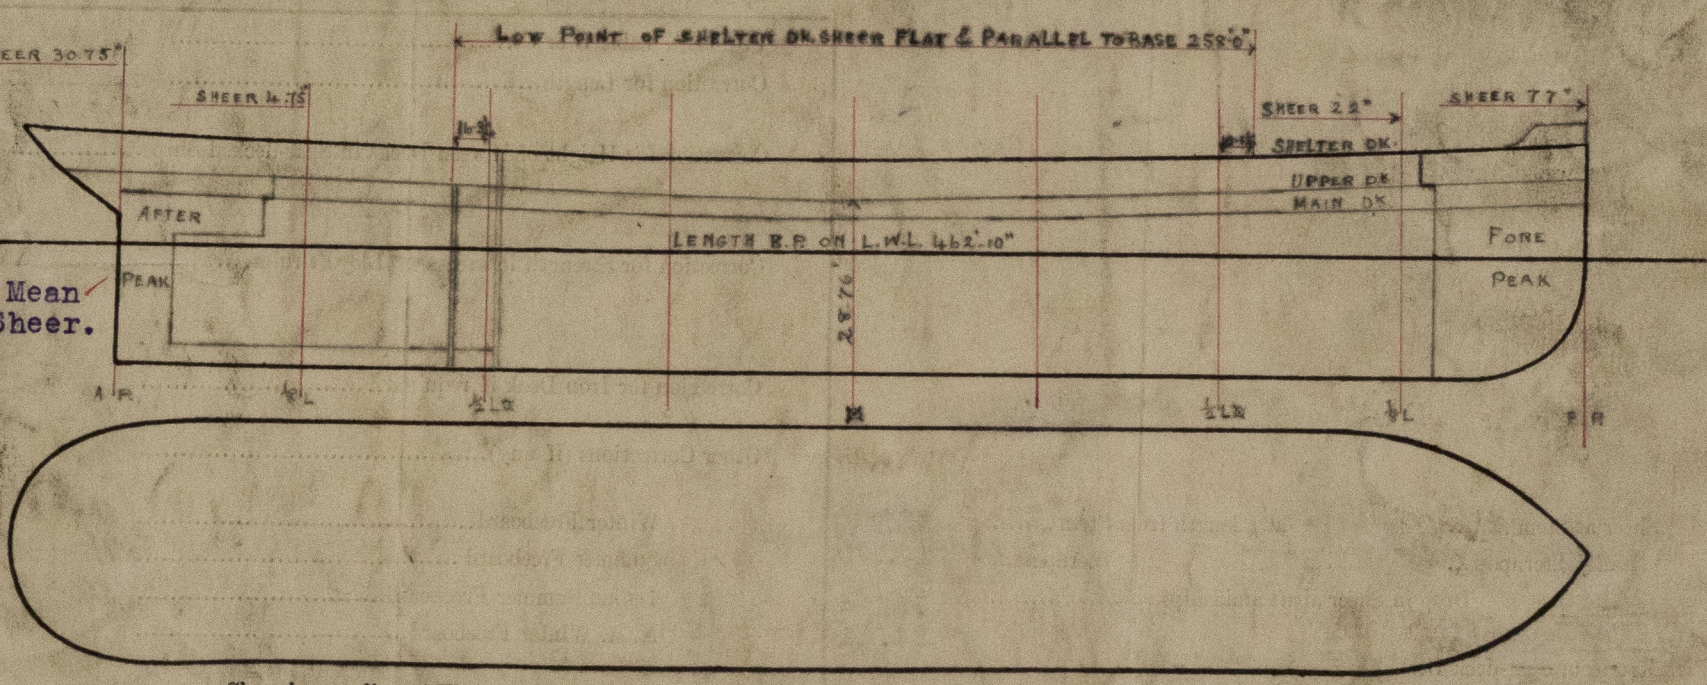 LOW POINT OF SHELTER DK. SHEER FLAT & PARALLEL TO BASE 258'.0"
EER 30.75"
SHEER 4.75"
SHEER 22"
SHEER 77"
SHELTER DK.
UPPER DK
MAIN DK
AFTER
LENGTH B.P. ON L.W.L. 462'.10"
FORE
PEAK
PEAK
Mean
Sheer.
28.76'
A P.
⅛ L
½ L
½ L
⅛ L
F P